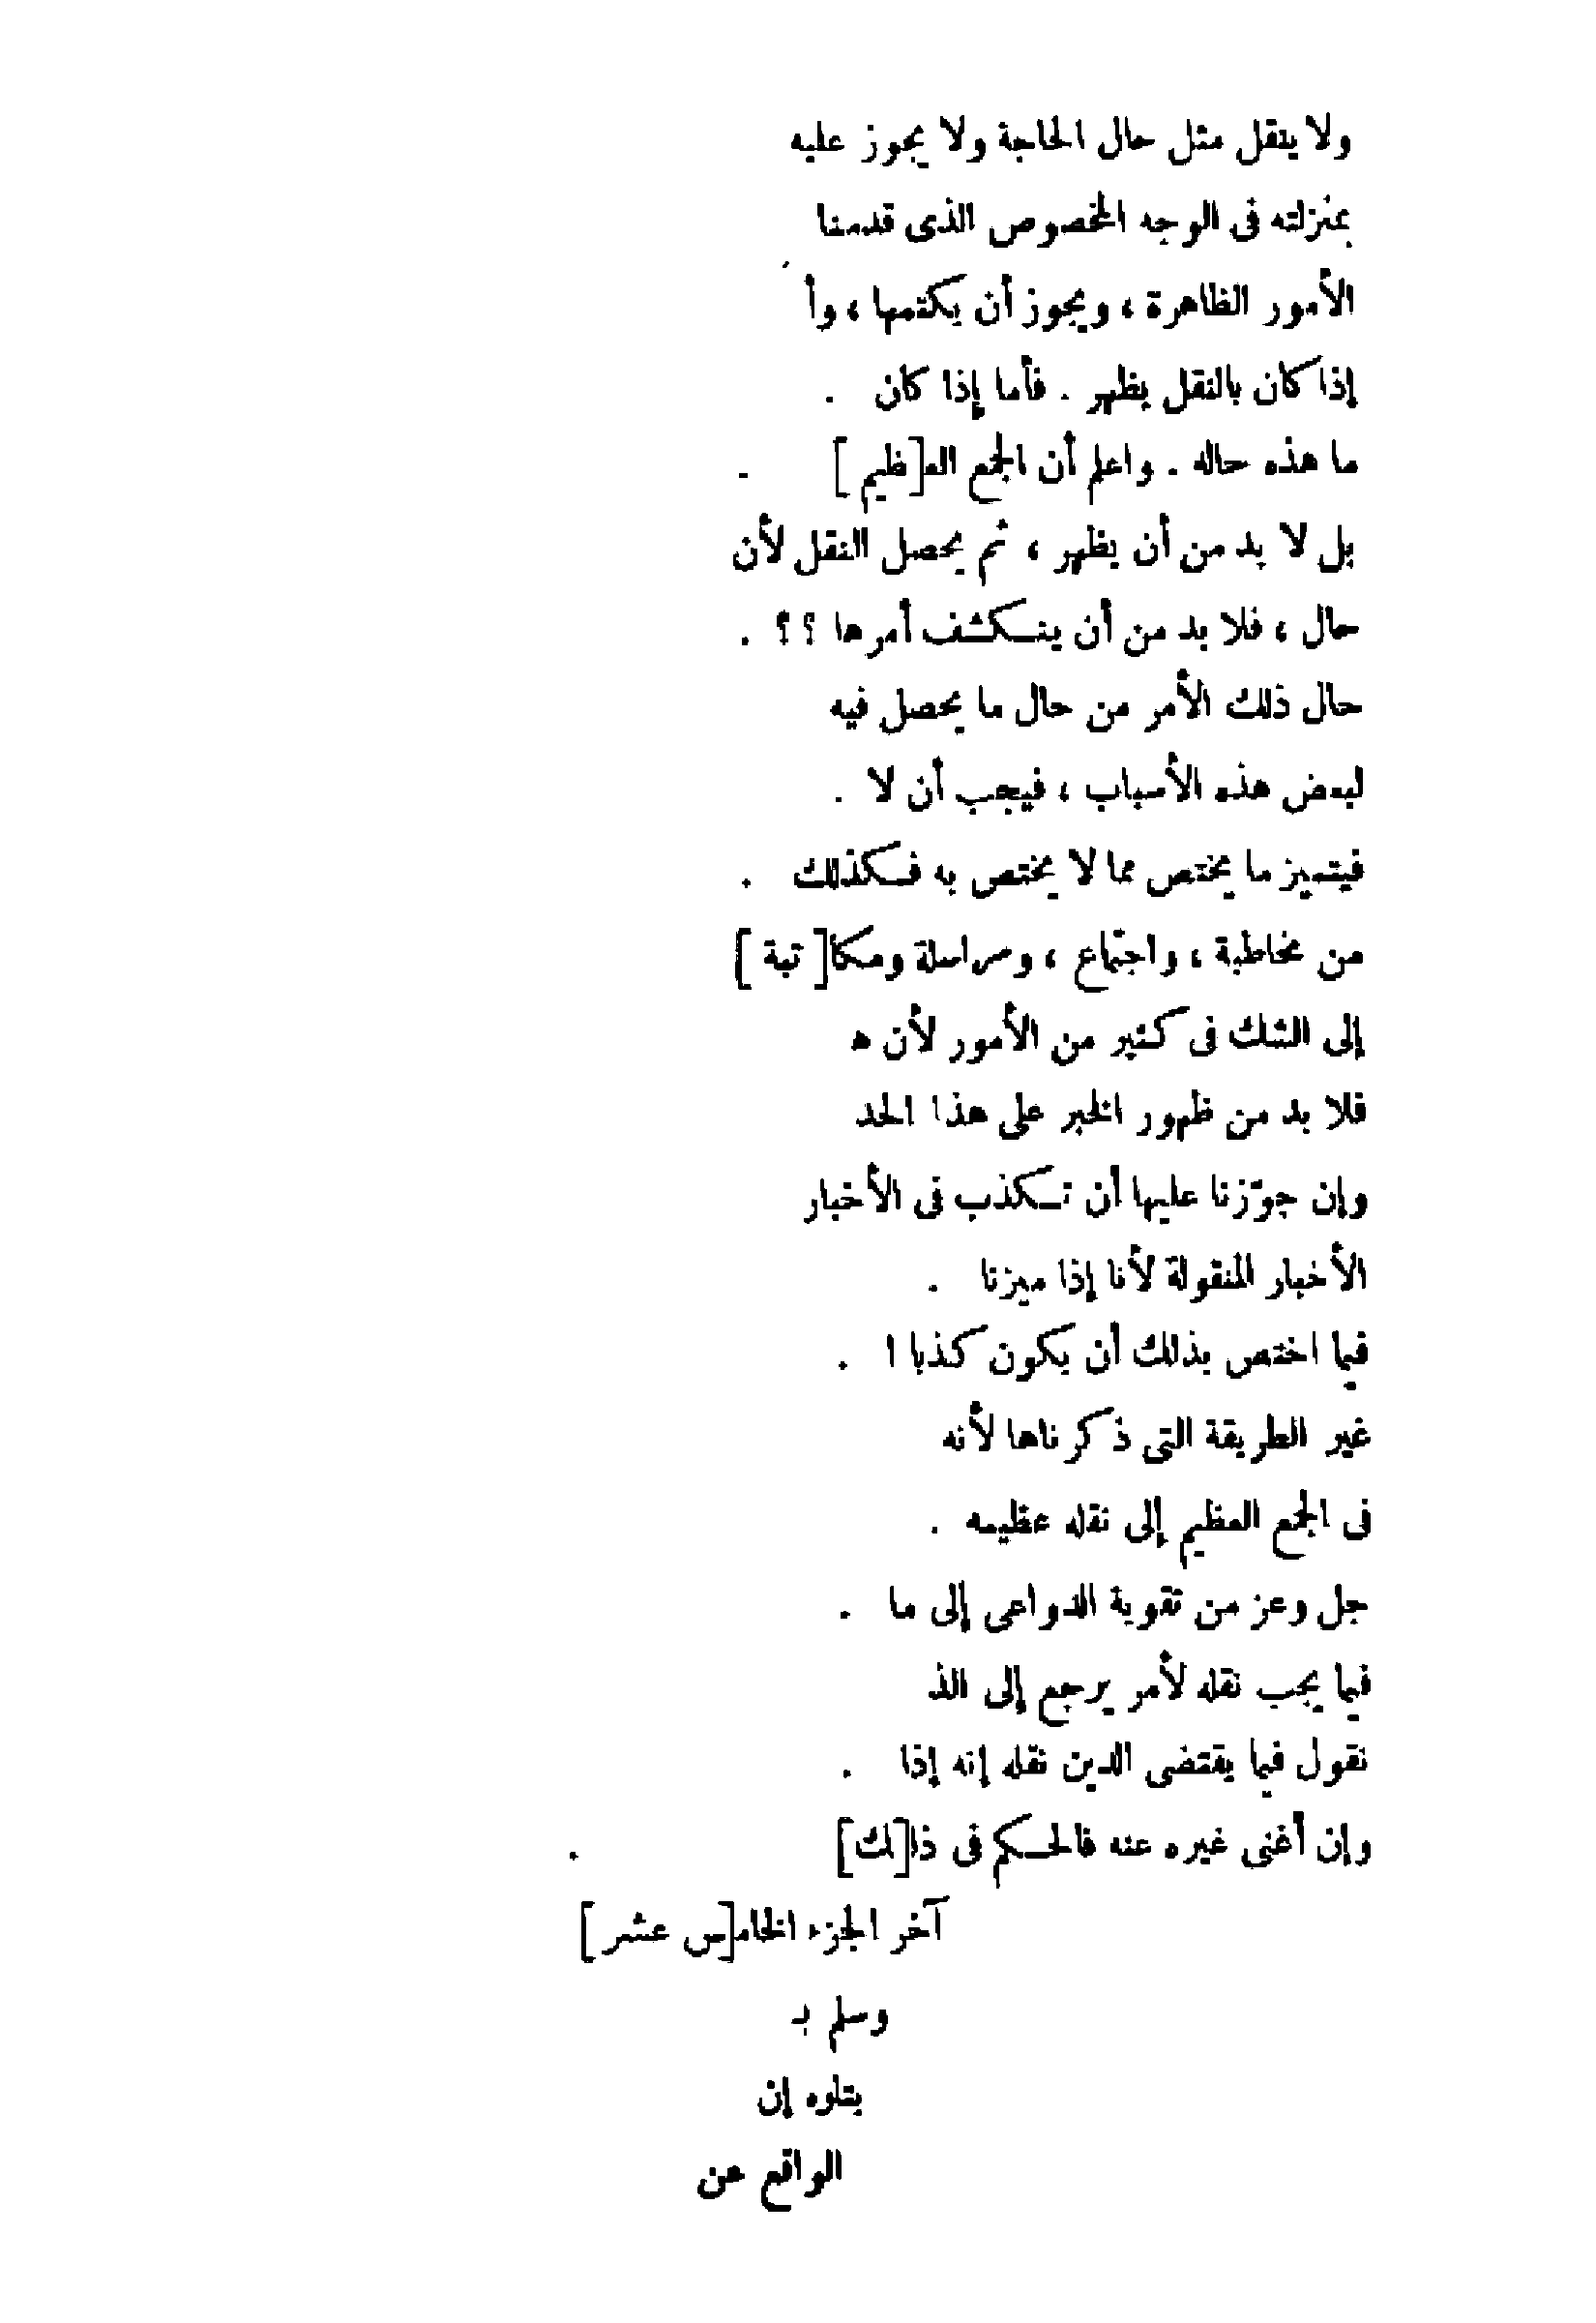 ولا ينقل مثل حال الحاجة ولا يجوز عليه
بمنزلته فى الوجه المخصوص الذى قدمنا
الأمور الظاهرة ، ويجوز أن يكتمها ، وأ
إذا كان بالنقل يظهر . فأما إذا كان .
ما هذه حاله . واعلم أن الجمع العـ[ظيم] .
بل لا بد من أن يظهر ، ثم يحصل النقل لأن
حال ، فلا بد من أن ينكشف أمرها ؟ ؟ .
حال ذلك الأمر من حال ما يحصل فيه
لبعض هذه الأسباب ، فيجب أن لا .
فيتميز ما يختص مما لا يختص به فكذلك .
من مخاطبة ، واجتماع ، ومراسلة ومكا[ تبة ]
إلى الشك فى كثير من الأمور لأن هـ
فلا بد من ظهور الخبر على هذا الحد
وإن جوّزنا عليها أن تكذب فى الأخبار
الأخبار المنقولة لأنا إذا ميزنا .
فيما اختص بذلك أن يكون كذبا ا .
غير الطريقة التى ذكرناها لأنه
فى الجمع العظيم إلى نقله عظيمه .
جل وعز من تقوية الدواعى إلى ما .
فيما يجب نقله لأمر يرجع إلى الذ
نقول فيما يقتضى الدين نقله إنه إذا .
وإن أغنى غيره عنه فالحكم فى ذا[لك] .
آخر الجزء الخامـ[س عشر ]
وسلم بـ
يتلوه إن
الواقع عن